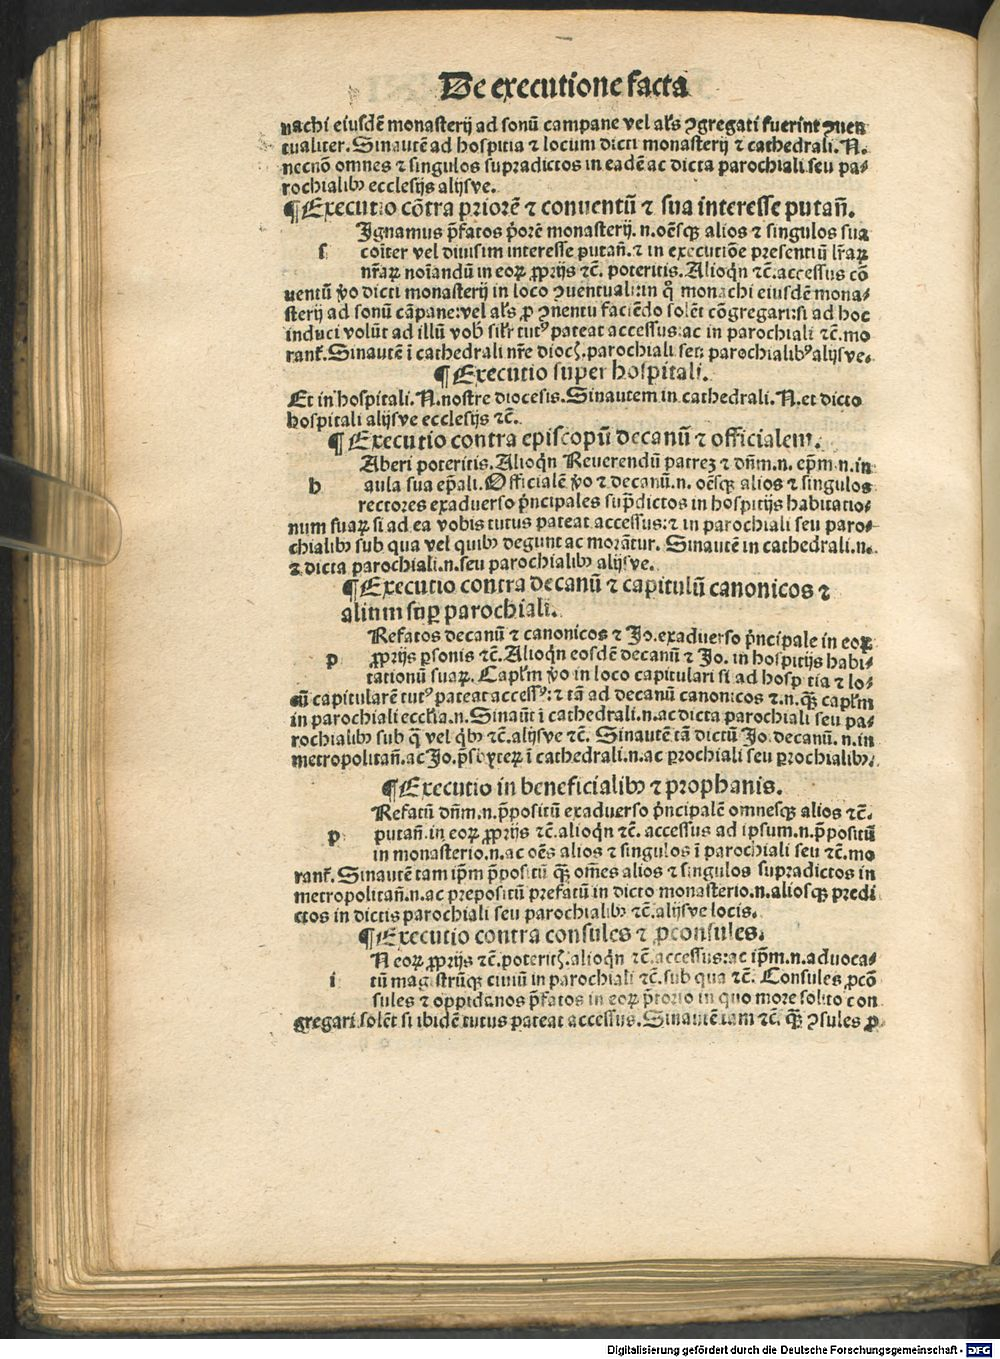 De executione facta
nachi eiusdē monasterij ad sonū campane vel al's ꝯgregati fuerint ꝯuen
tualiter. Sinautē ad hospitia ⁊ locum dicti monasterij ⁊ cathedrali. N.
necnō omnes ⁊ singulos supradictos in eadē ac dicta parochiali seu pa-
rochialibꝫ ecclesijs alijsve.
¶ Executio cōtra priorē ⁊ conuentū ⁊ sua interesse putañ.
Ignamus p̄fatos p̓orē monasterij. n. oēsqꝫ alios ⁊ singulos sua
s coīter vel diuisim interesse putañ. ⁊ in executiōe presentiū lr̄aꝝ
nr̄aꝝ noīandū in eoꝝ ꝓprijs ⁊c̄. poteritis. Alioqn̄ ⁊c̄. accessus cō
uentū v̓o dicti monasterij in loco ꝯuentuali: in q̊ monachi eiusdē mona-
sterij ad sonū cāpane: vel al's ꝓ ꝯuentu faciēdo solēt cōgregari: si ad hoc
induci volūt ad illū vob̓ sil'r tutꝰ pateat accessus: ac in parochiali ⁊c̄. mo
rant̓. Sinautē ī cathedrali nr̄e dioc̓. parochiali seu parochialibꝰ alijsve.
¶ Executio super hospitali.
Et in hospitali. N. nostre diocesis. Sinautem in cathedrali. N. et dicto
hospitali alijsve ecclesijs ⁊c̄.
¶ Executio contra episcopū decanū ⁊ officialem.
Aberi poteritis. Alioqn̄ Reuerendū patreꝫ ⁊ dn̄m. n. ep̄m. n. in
h aula sua ep̄ali. Officialē v̓o ⁊ decanū. n. oēsqꝫ alios ⁊ singulos
rectores exaduerso p̓ncipales sup̄dictos in hospitijs habitatio-
num suaꝝ si ad ea vobis tutus pateat accessus: ⁊ in parochiali seu paro-
chialibꝫ sub qua vel quibꝫ degunt ac morātur. Sinautē in cathedrali. n.
⁊ dicta parochiali. n. seu parochialibꝫ alijsve.
¶ Executio contra decanū ⁊ capitulū canonicos ⁊
alium suꝑ parochiali.
Refatos decanū ⁊ canonicos ⁊ Jo. exaduerso p̓ncipale in eoꝝ
p ꝓprijs ꝑsonis ⁊c̄. Alioqn̄ eosdē decanū ⁊ Jo. in hospitijs habi-
tationū suaꝝ. Capl'm v̓o in loco capitulari si ad hospitia ⁊ lo-
cū capitularē tutꝰ pateat accessꝰ: ⁊ tā ad decanū canonicos ⁊. n. qꝫ̄ capl'm
in parochiali eccl'ia. n. Sinaūt ī cathedrali. n. ac dicta parochiali seu pa-
rochialibꝫ sub q̄ vel q̓bꝫ ⁊c̄. alijsve ⁊c̄. Sinautē tā dictū Jo. decanū. n. in
metropolitañ. ac Jo. p̄sbyteꝝ ī cathedrali. n. ac ꝑochiali seu ꝑochialibꝫ.
¶ Executio in beneficialibꝫ ⁊ prophanis.
Refatū dn̄m. n. p̄positū exaduerso p̓ncipalē omnesqꝫ alios ⁊c̄.
p putañ. in eoꝝ ꝓprijs ⁊c̄. alioqn̄ ⁊c̄. accessus ad ipsum. n. p̄positū
in monasterio. n. ac oēs alios ⁊ singulos ī parochiali seu ⁊c̄. mo
rant̓. Sinautē tam ip̄m p̄positū qꝫ̄ om̄es alios ⁊ singulos supradictos in
metropolitañ. n. ac prepositū prefatū in dicto monasterio. n. aliosqꝫ predi
ctos in dictis parochiali seu parochialibꝫ ⁊c̄. alijsve locis.
¶ Executio contra consules ⁊ ꝓconsules.
N eoꝝ ꝓprijs ⁊c̄. poterit̓. alioqn̄ ⁊c̄. accessus: ac ip̄m. n. aduoca-
i tū magistrūqꝫ ciuiū in parochiali ⁊c̄. sub qua ⁊c̄. Consules ꝓcō
sules ⁊ oppidanos p̄fatos in eoꝝ p̄torio in quo more solito con
gregari solēt si ibidē tutus pateat accessus. Sinautē tam ⁊c̄. qꝫ̄ ꝯsules ꝓ
Digitalisierung gefördert durch die Deutsche Forschungsgemeinschaft - DFG